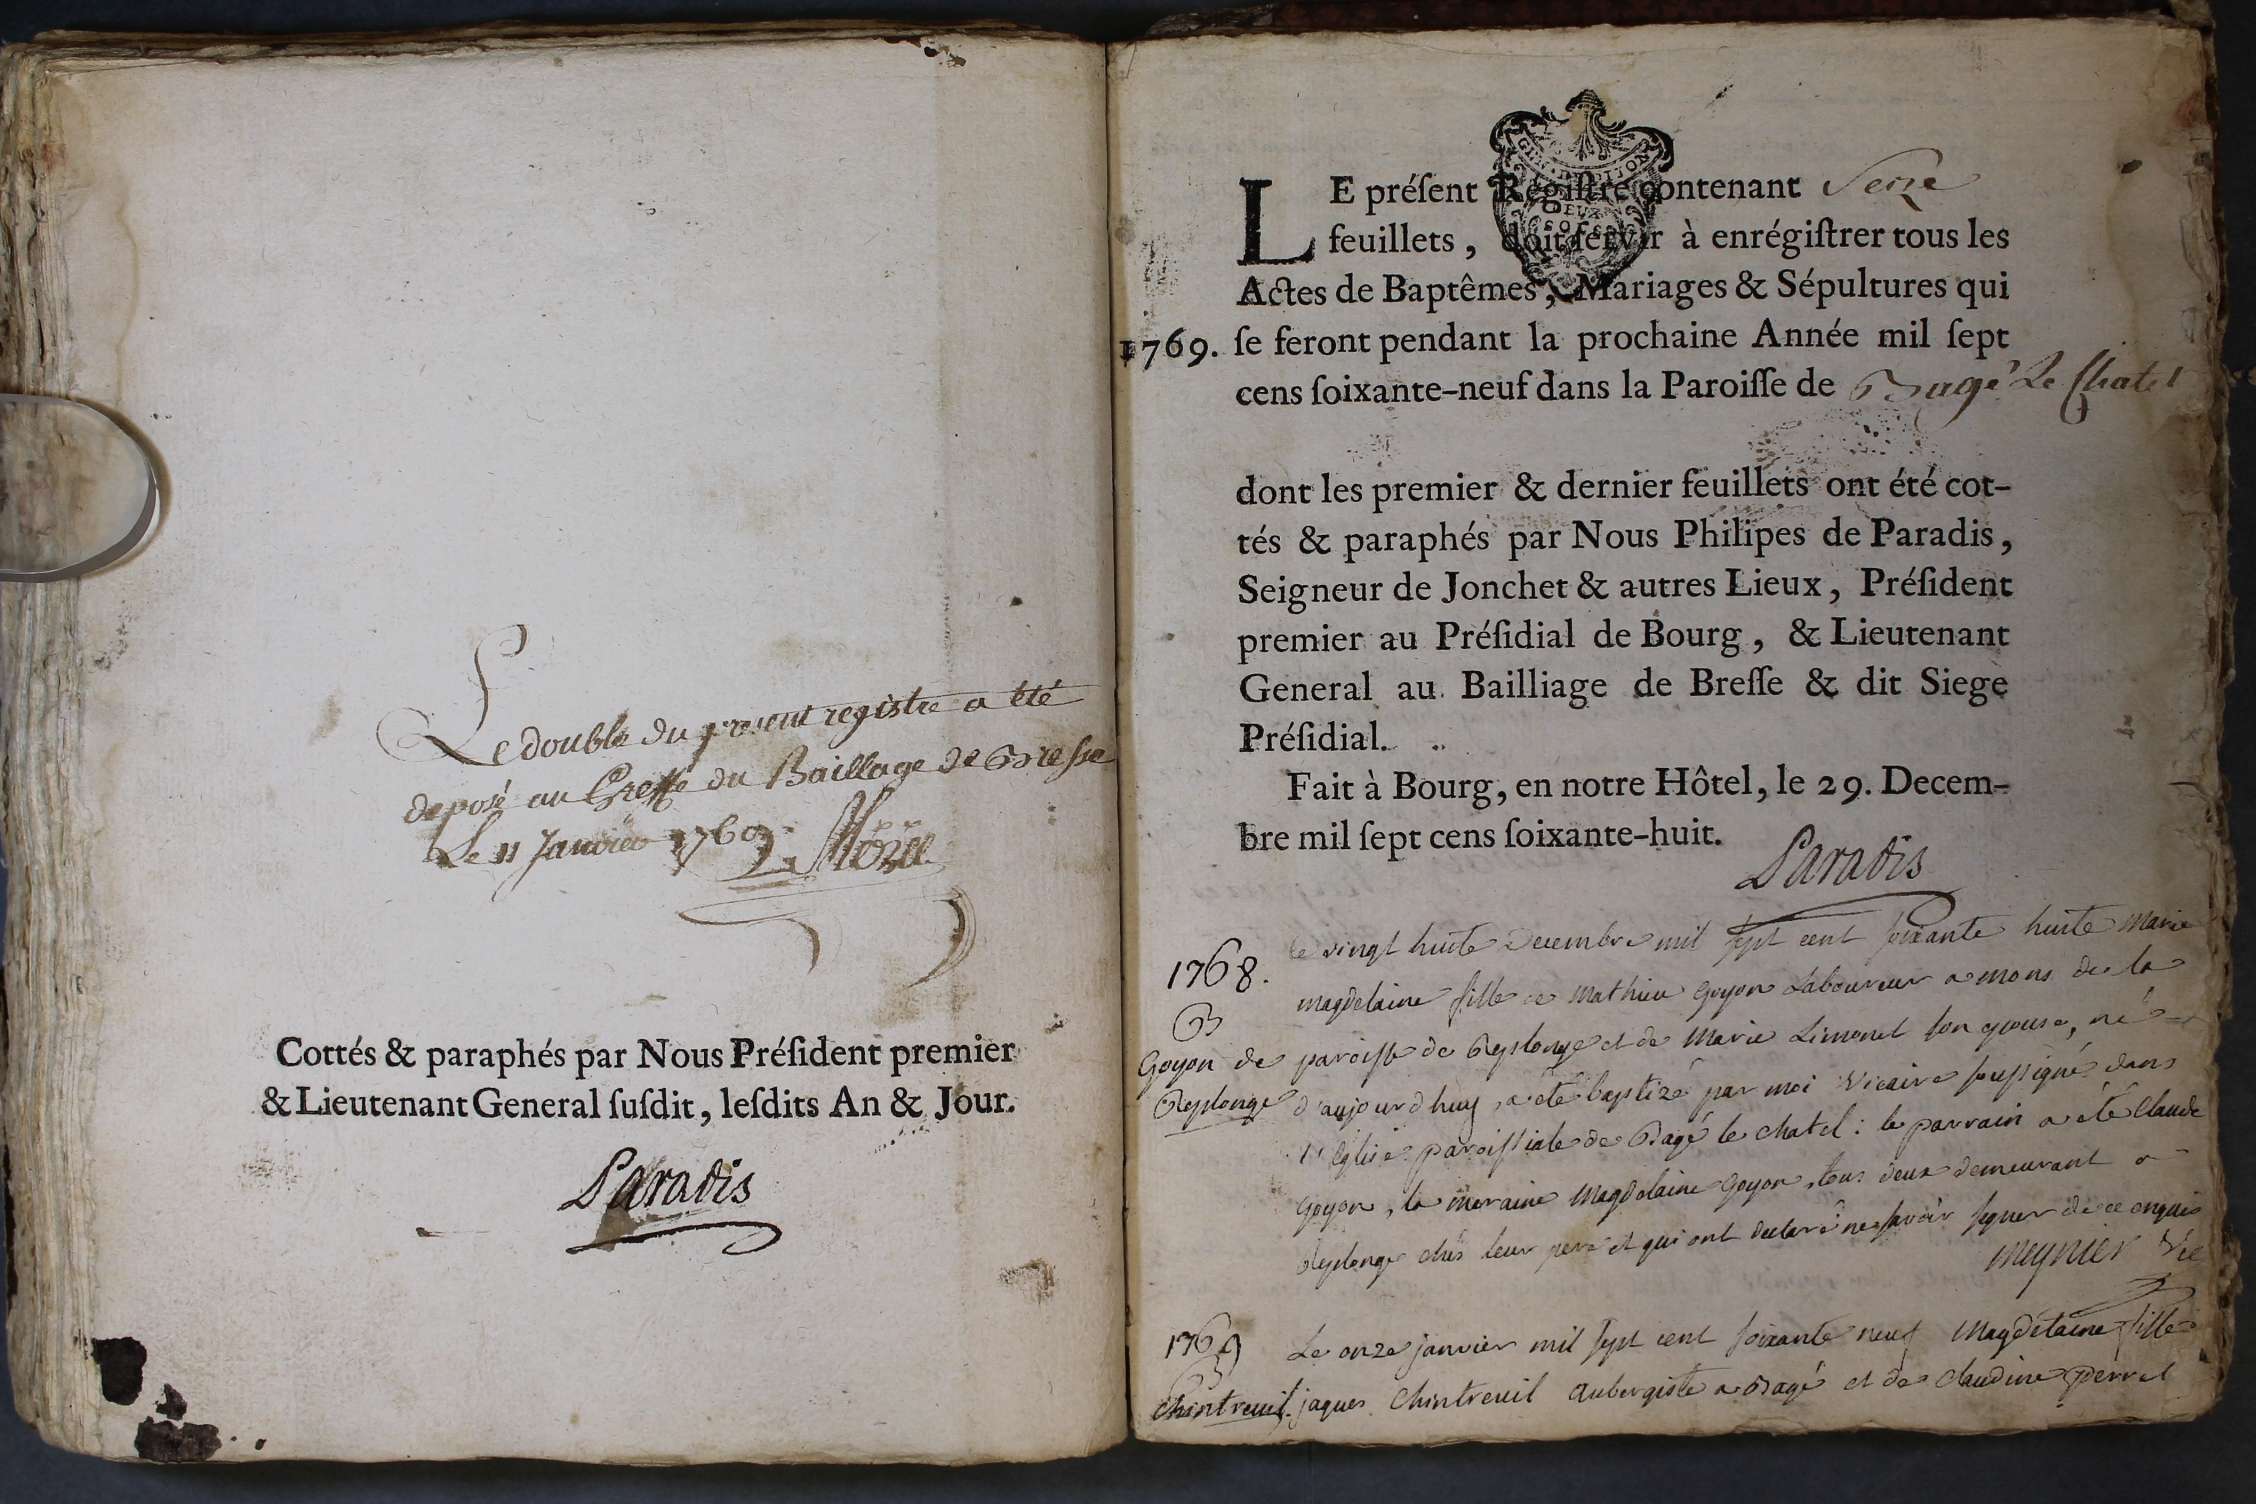 Le double du present registre a été
deposé au Greffe du Baillage de Bresse
Le 11 Janvier 1769
Cottés & paraphés par Nous Préſident premier
& Lieutenant General ſuſdit, leſdits An & Jour.
Paradis
LE préſent Régiſtre contenant Seize
feuillets, doit ſervir à enrégiſtrer tous les
Actes de Baptêmes, Mariages & Sépultures qui
1769. ſe feront pendant la prochaine Année mil ſept
cens ſoixante-neuf dans la Paroiſſe de Bagé Le Chatel
dont les premier & dernier feuillets ont été cot-
tés & paraphés par Nous Philipes de Paradis,
Seigneur de Jonchet & autres Lieux, Préſident
premier au Préſidial de Bourg, & Lieutenant
General au Bailliage de Breſſe & dit Siege
Préſidial.
Fait à Bourg, en notre Hôtel, le 29. Decem-
bre mil ſept cens ſoixante-huit.
Paradis
1768.
B
Goyon de
Replonge
le vingt huite Decembre mil sept cent soixante huite Marie
magdelaine fille de Mathieu Goyon Laboureur a mons de la
paroisse de Replonge et de Marie Limonet son epouse, né
d'aujourdhuy, a été baptizé par moi Vicaire soussigné dans
l'Eglise paroissiale de Bagé le chatel : le parrain a été Claude
Goyon, la maraine Magdelaine Goyon, tous deux demeurant a
Replonge chés leur pere et qui ont declaré ne savoir signer de ce enquis
meynier Vic
1769
B
Chintreuil.
Le onze janvier mil sept cent soixante neuf Magdelaine fille
jaques Chintreuil Aubergiste a Bagé et de Claudine perret